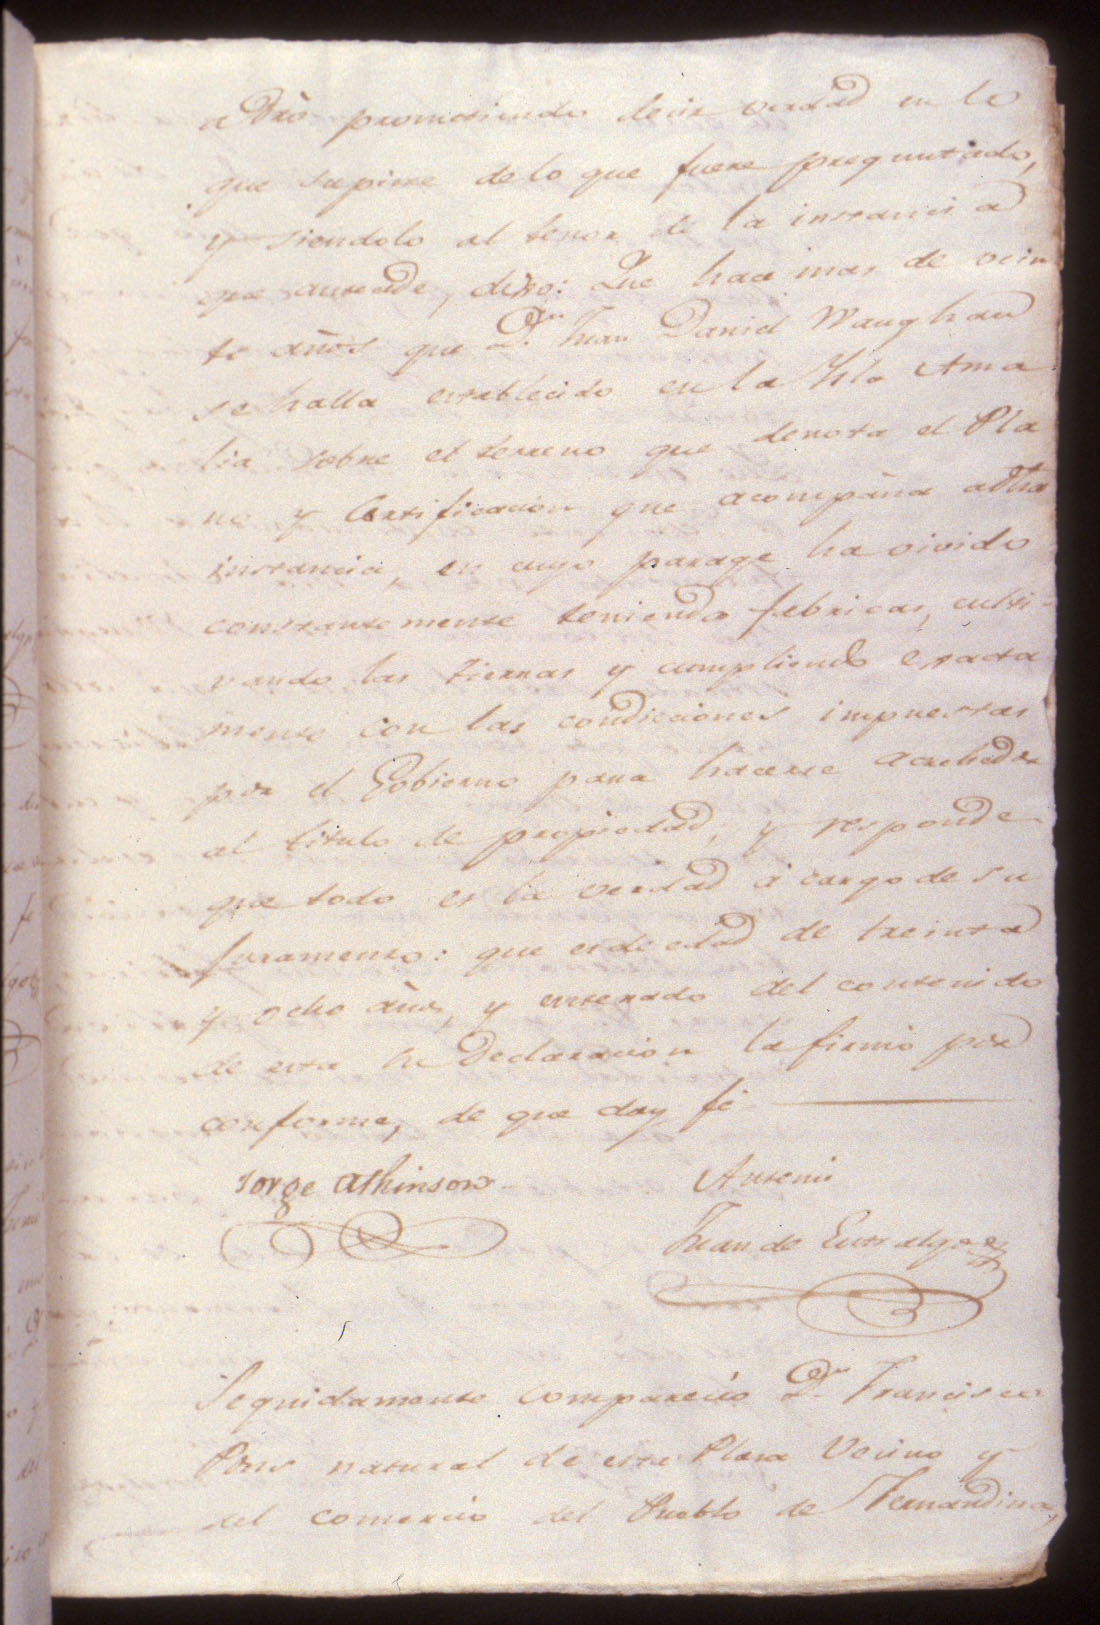 a Dro prometiendo decir verdad en lo
que supiere de lo que fuere preguntado,
y siendolo al tenor de la instancia
que antecede, dixo: Que hace mas de vein
te años que Dn. Juan Daniel Waughan
se halla establecido en la Ysla Ama
lia sobre el terreno que denota el Pla
no y Certificacion que acompaña a dha
instancia, en cuyo parage ha vivido
constantemente teniendo fabricas, culti-
vando las tierras y cumpliendo exacta
mente con las condiciones impuestas
por el Gobierno para hacerse acrehedor
al titulo de propiedad, y responde
que todo es la verdad á cargo de su
juramento: que es de edad de treinta
y ocho años, y enterado del contenido
de esta su Declaracion la firmó por
conforme, de que doy fé
Jorge Athinson
Antemi
Juan de Entralgo
Seguidamente compareció Dn. Francisco
Pons natural de esta Plaza Vecino y
del comercio del Pueblo de Fernandina,